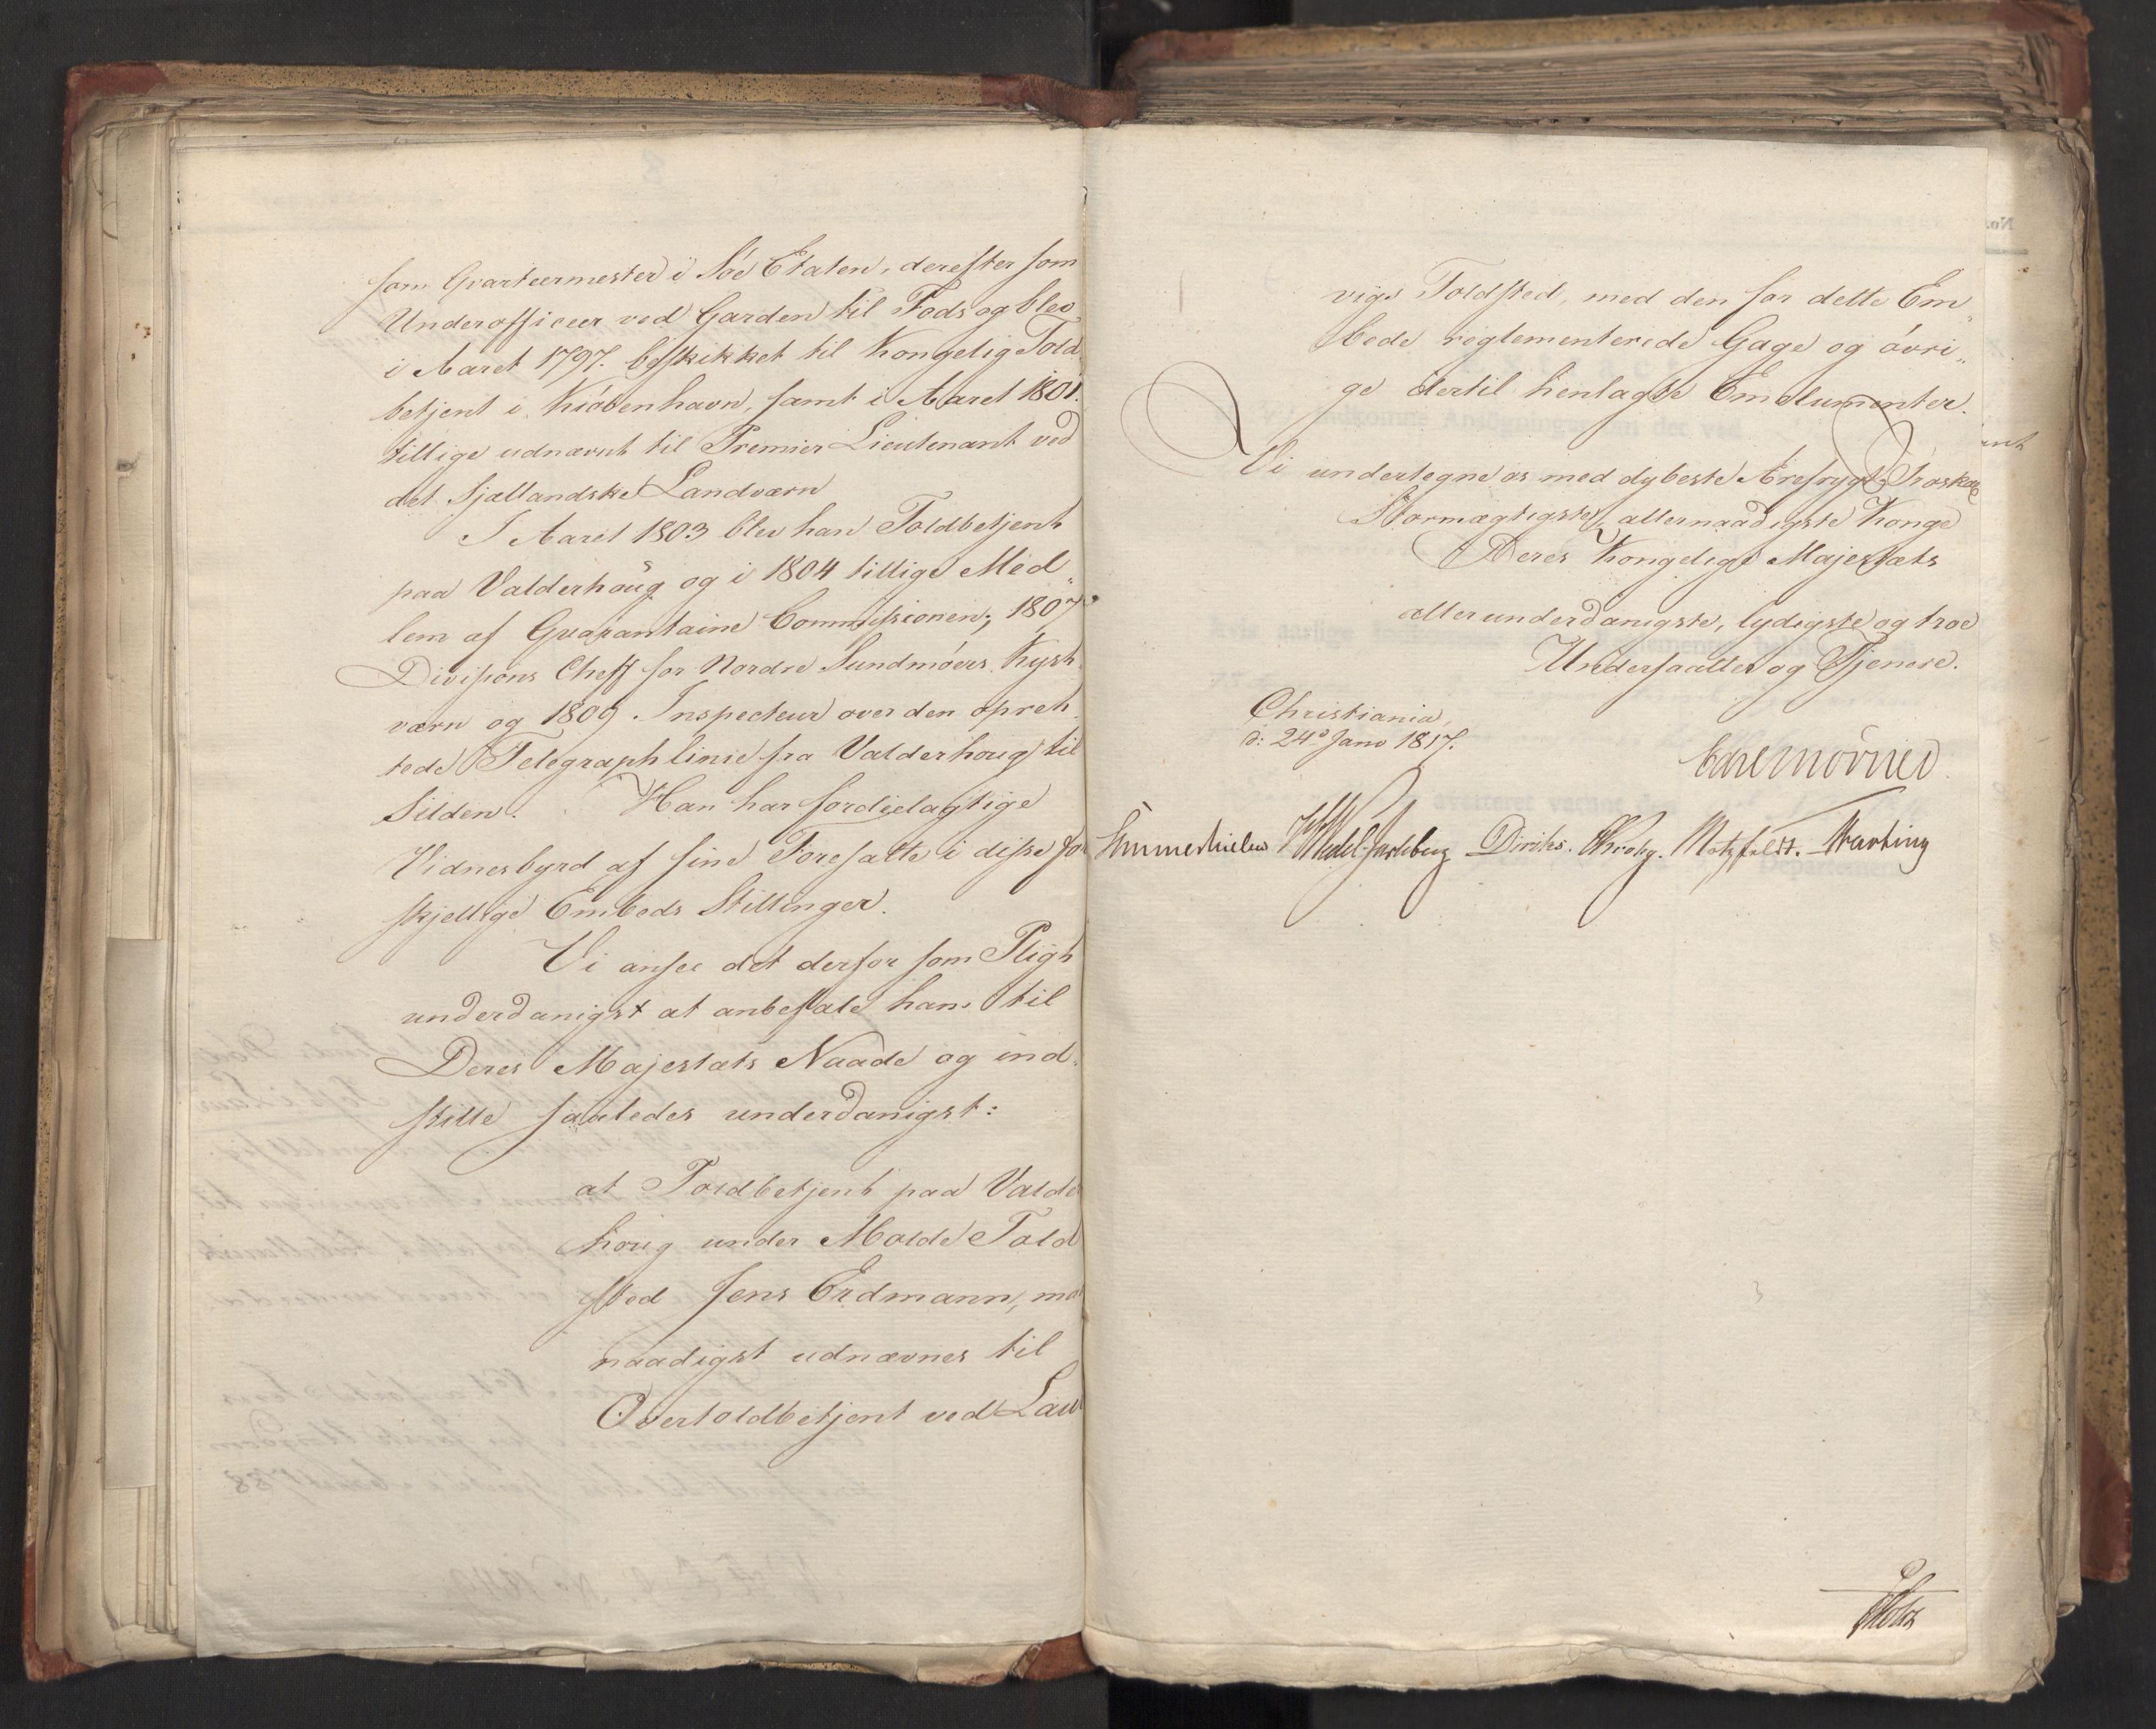 som Qvarteermester i Söe Etaten, derefter som
Underofficeer ved Garden til Fods og blev
i Aaret 1797. beskikket til Kongelig Told
betjent i Kiöbenhavn, samt i Aaret 1801.
tillige udnævnt til Premier Lieutenant ved
det Sjællandske Landværn
I Aaret 1803 blev han Toldbetjent
paa Valderhoug og i 1804 tillige Med„
lem af Quarantaine Commissionen; 1807
Divisions Cheff for Nordre Sundmöers Kyst
værn og 1809. Inspecteur over den opret
tede Telegraphlinie fra Valderhoug til
Silden. Han har fordeelagtige
Vidnesbyrd af sine Foresatte i disse for
skjellige Embeds Stillinger.
Vi ansee det derfor som Pligt
underdanigst at anbefale ham til
Deres Majestæts Naade og ind
stille saaledes underdanigst:
at Toldbetjent paa Valder
houg under Molde Told
sted Jens Erdmann, maa
naadigst udnævnes til
Overtoldbetjent ved Laur
vigs Toldsted, med den for dette Em„
bede reglementerede Gage og övri„
ge dertil henlagte Emolumenter.
Vi undertegne os med dybeste Ærefrygt & Troskab
Stormægtigste, allernaadigste Konge
Deres Kongelige Majestæts
allerunderdanigste, lydigste og troe
Undersaatter og Tjenere.
Christiania,
d: 24de Janv 1817.
Mörner
Sommerhielm Wedel Jarlsberg Diriks. Krohg. Motzfeldt. Treschow
Holst